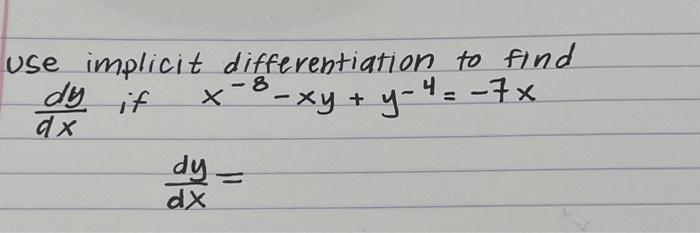 use implicit differentiation to find
dy/dx if x^-8 - xy + y^-4 = -7x
dy/dx =